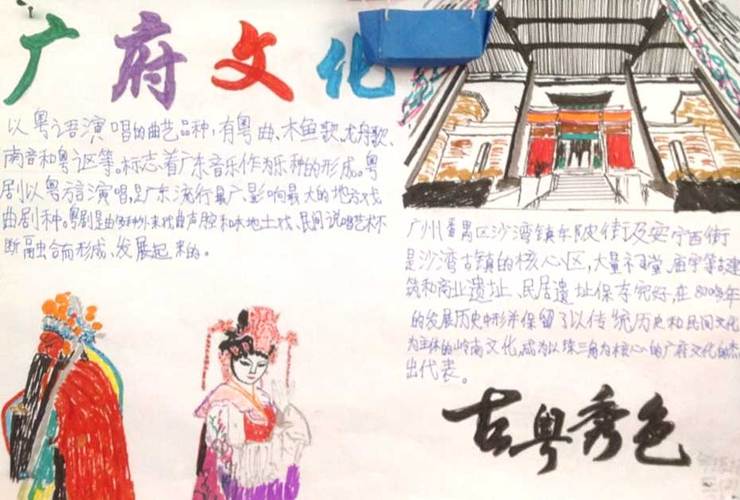 广府文化
以粤语演唱的曲艺品种,有粤曲、木鱼歌、龙舟歌、
南音和粤讴等。标志着广东音乐作为乐种的形成。粤
剧以粤方言演唱,是广东流行最广,影响最大的地方戏
曲剧种。粤剧是由多种外来戏曲声腔和本地土戏、民间说唱艺术不
断融合而形成、发展起来的。
广州番禺区沙湾镇车陂街及安宁西街
是沙湾古镇的核心区,大量祠堂、庙宇等古建
筑和商业遗址、民居遗址保存完好,在800多年
的发展历史中形并保留了以传统历史和民间文化
为主体的岭南文化,成为以珠三角为核心的广府文化的杰
出代表。
古粤秀色